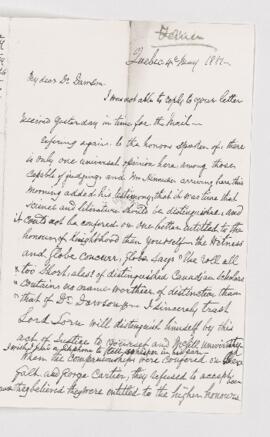 Quebec 4th May 1881-
My dear Dr. Dawson
I was not able to reply to your letter
received yesterday in time for the Mail-
Referring again to the honors spoken of; there
is only one universal opinion here among those
capable of judging, and Mr Alexander arriving here this
morning added his testimony, that it was time that
Science and literature should be distinguished, and
it could not be conferred on one better entitled to the
honour of Knighthood than yourself- the Witness
and Globe concur, Globe says "the roll all
too short, alas! of distinguished Canadian scholars
contains no name worthier of distinction than
that of Dr Dawson" - I sincerely trust
Lord Lorne will distinguish himself by this
act of justice to yourself and McGill University
When the Companionships were conferred on
Galt and George Cartier, they refused to accept
they believed they were entitled to the higher honours